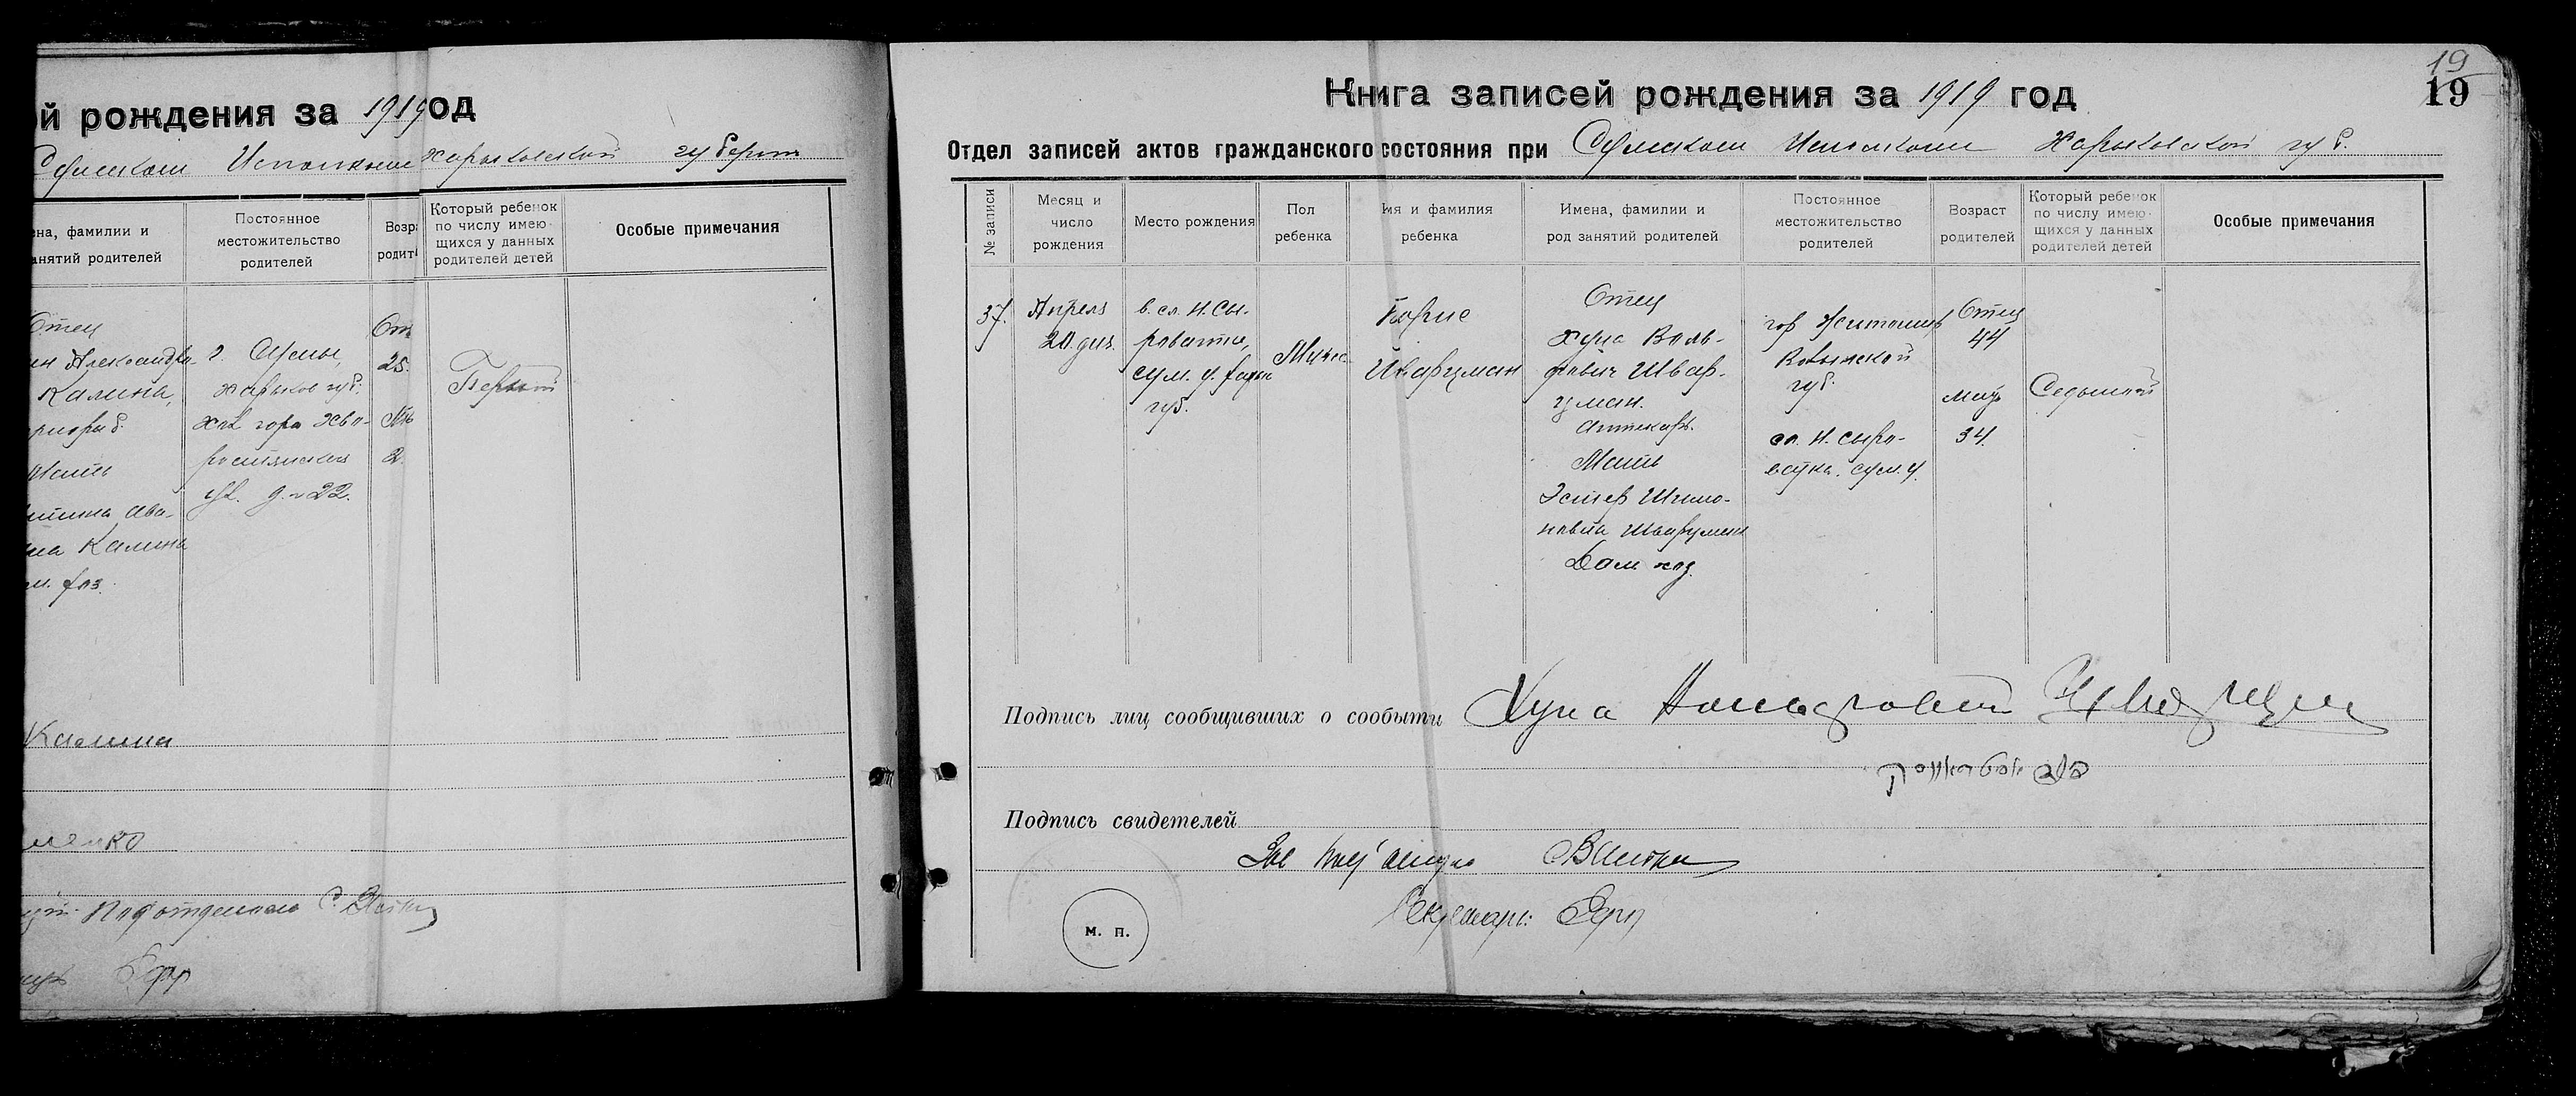 ой рождения за 1919 од
Сумском Исполкоме Харьковской губерни
ена, фамилии и
анятий родителей
Постоянное
местожительство
родителей
Возра
родит
Который ребенок
по числу имею-
щихся у данных
родителей детей
Особые примечания
Отец
ин Александро-
Калина,
Мать
на Калина
г. Сумы,
Харьков губ.
ул. д. № 22.
Отец
25.
Мь
2
Первый
Калина
менко
Подотделом
19
19
Книга записей рождения за 1919 год
Отдел записей актов гражданского состояния при Сумском Исполкоме Харьковской губ.
№ записи
Месяц и
число
рождения
Место рождения
Пол
ребенка
Имя и фамилия
ребенка
Имена, фамилии и
род занятий родителей
Постоянное
местожительство
родителей
Возраст
родителей
Который ребенок
по числу имею-
щихся у данных
родителей детей
Особые примечания
37.
Апреля
20 дня.
в сл. Н. Сы-
роватке,
Сум. у. Харьк
губ.
Мужс.
Борис
Шварцман
Отец
Хуна Воль-
фович Швар-
цман.
Аптекарь.
Мать
Эстер Шимо-
новна Шварцман
Дом. хоз.
гор Житомир
Волынской
губ.
сл. Н. Сыро-
ватка. Сум. у.
Отец
44
Мать
34.
Седьмой
Подпись лиц сообщивших о сообыти Хуна Вольфович Шварцман
Подпись свидетелей
Зав. Подотдел
Секретарь:
м. п.